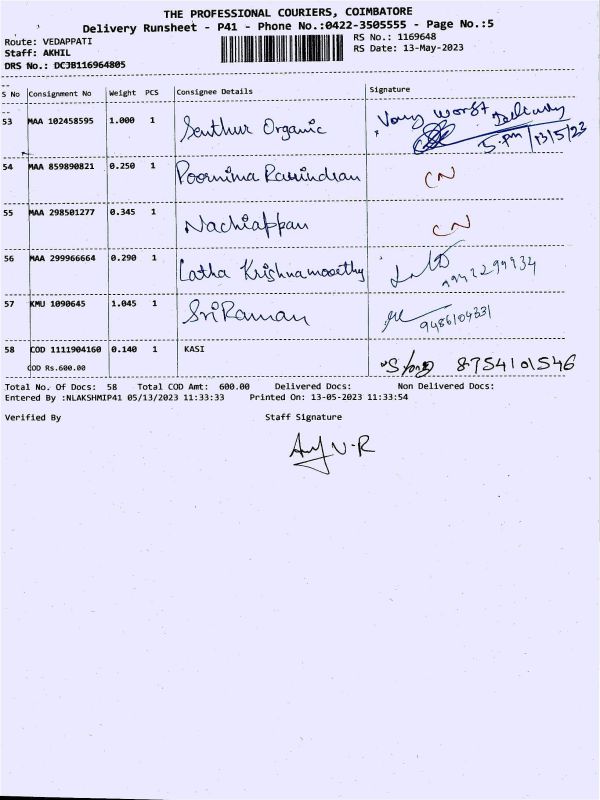 THE PROFESSIONAL COURIERS, COIMBATORE
Delivery Runsheet - P41 - Phone No.:0422-3505555 - Page No.:5
Route: VEDAPPATI
RS No.: 1169648
Staff: AKHIL
RS Date: 13-May-2023
DRS No.: DCJB116964805
S No Consignment No Weight PCS Consignee Details Signature
53 MAA 102458595 1.000 1 Senthur Organic Very worst Delivery
5. pm 13/5/23
54 MAA 859890821 0.250 1 Poornima Ravindran CN
55 MAA 298501277 0.345 1 Nachiappan CN
56 MAA 299966664 0.290 1 Latha Krishnamoorthy
57 KMU 1090645 1.045 1 SriRaman 9486104331
58 COD 1111904160 0.140 1 KASI 8754101546
COD Rs.600.00
Total No. Of Docs: 58 Total COD Amt: 600.00 Delivered Docs: Non Delivered Docs:
Entered By :NLAKSHMIP41 05/13/2023 11:33:33 Printed On: 13-05-2023 11:33:54
Verified By Staff Signature